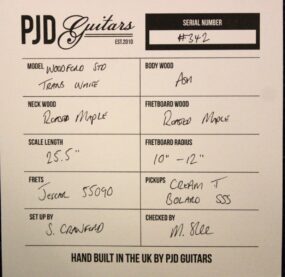 PJD Guitars
EST.2010
SERIAL NUMBER
#342
MODEL WOODFORD STD
TRANS WHITE
BODY WOOD
ASH
NECK WOOD
ROASTED MAPLE
FRETBOARD WOOD
ROASTED MAPLE
SCALE LENGTH
25.5"
FRETBOARD RADIUS
10" - 12"
FRETS
JESCAR 55090
PICKUPS CREAM T
BOLARD SSS
SET UP BY
S. CRAWFORD
CHECKED BY
M.
HAND BUILT IN THE UK BY PJD GUITARS